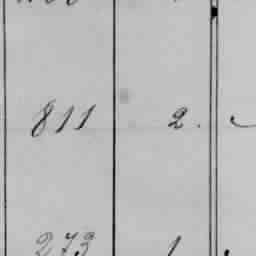 811 2.
273 1